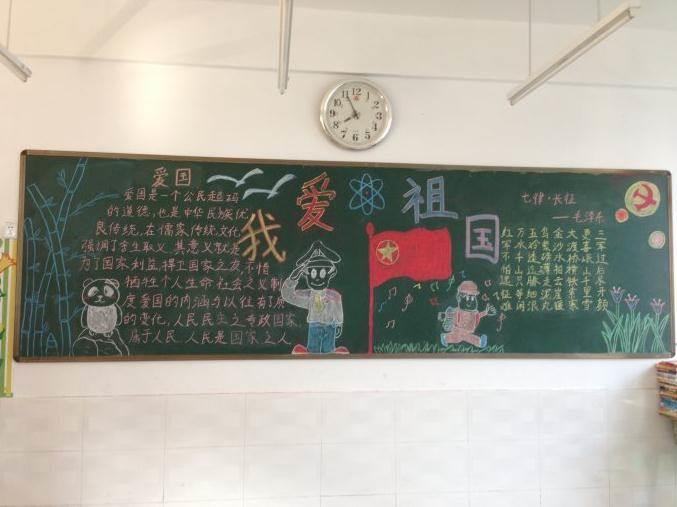 爱国
爱国是一个公民起码
的道德,也是中华民族优
良传统,在儒家传统文化
强调了舍生取义,其意义就是
为了国家利益,捍卫国家之,不惜
牺牲个人生命,社会之义制
度爱国的内涵与以往有了
的变化,人民民主之专政国家
属于人民,人民是国家之人
我爱祖国
七律·长征
—毛泽东
红军不怕远征难
万水千山只等闲
五岭逶迤腾细浪
乌蒙磅礴走泥丸
金沙水拍云崖暖
大渡桥横铁索寒
更喜岷山千里雪
三军过后尽开颜